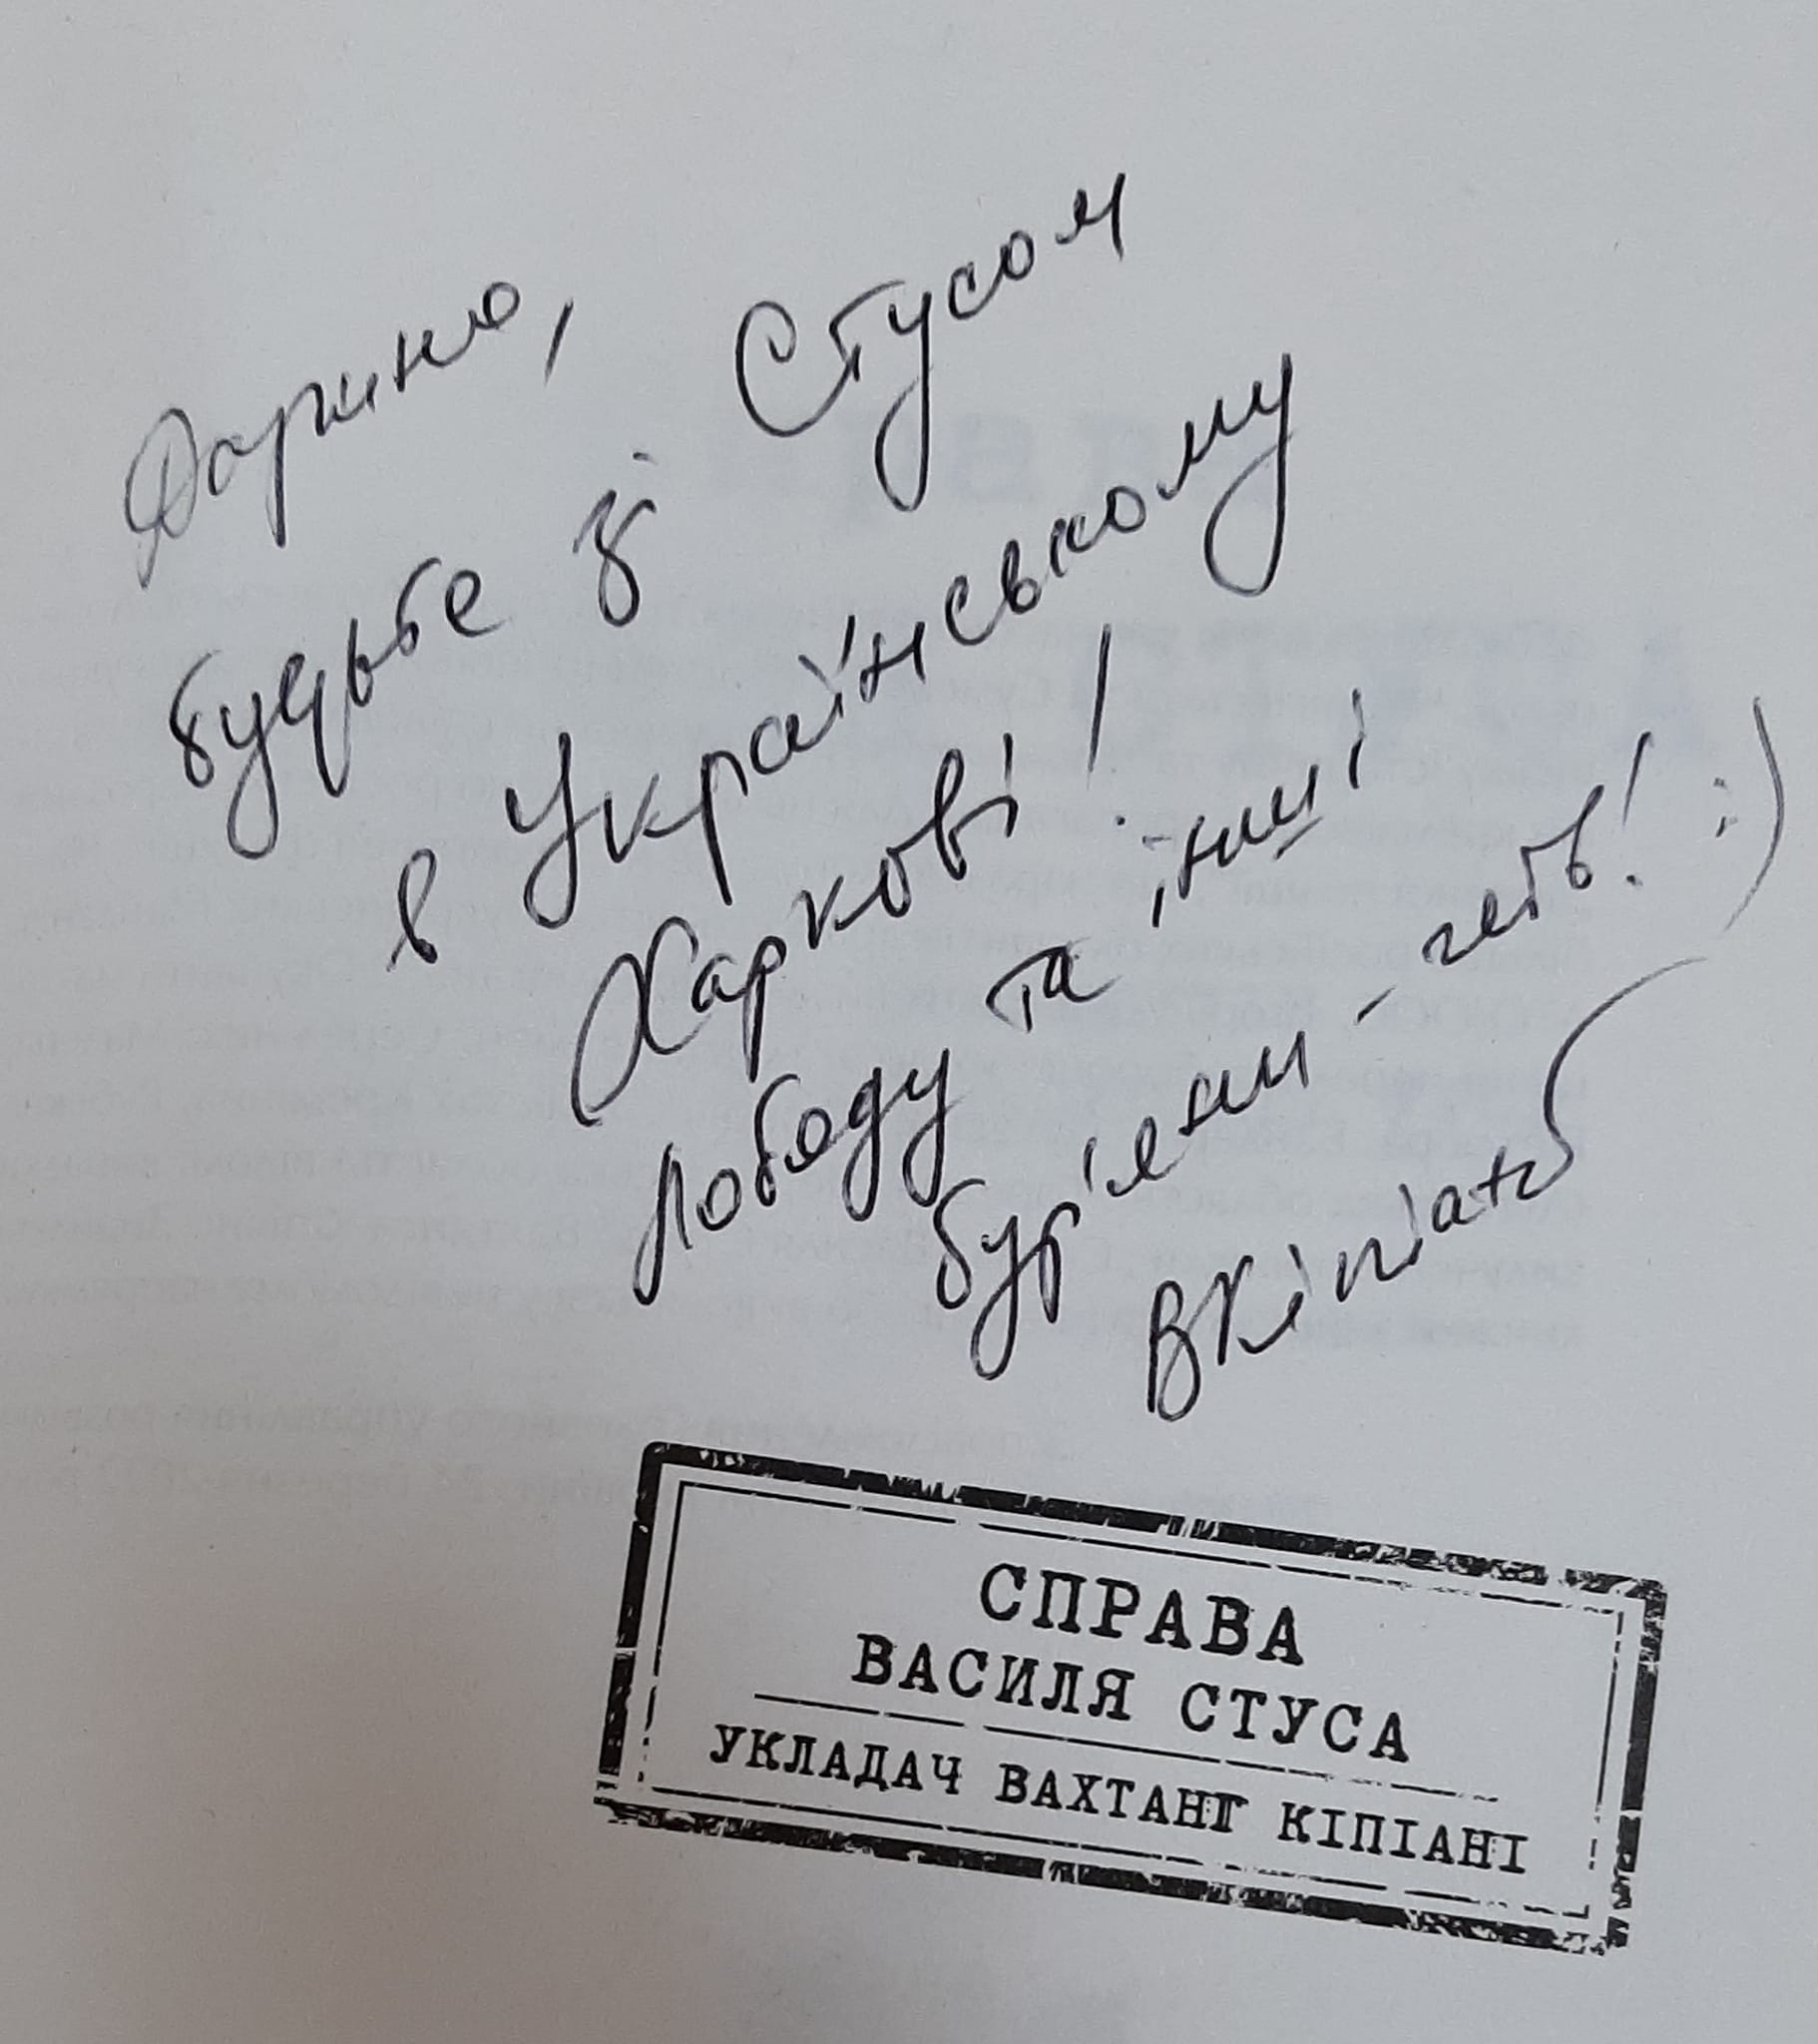 Дарино,
будьте зі Стусом
в Українському
Харкові!
лободу та інші
бур'яни - геть! :)
ВКіпіані
СПРАВА
ВАСИЛЯ СТУСА
УКЛАДАЧ ВАХТАНГ КІПІАНІ